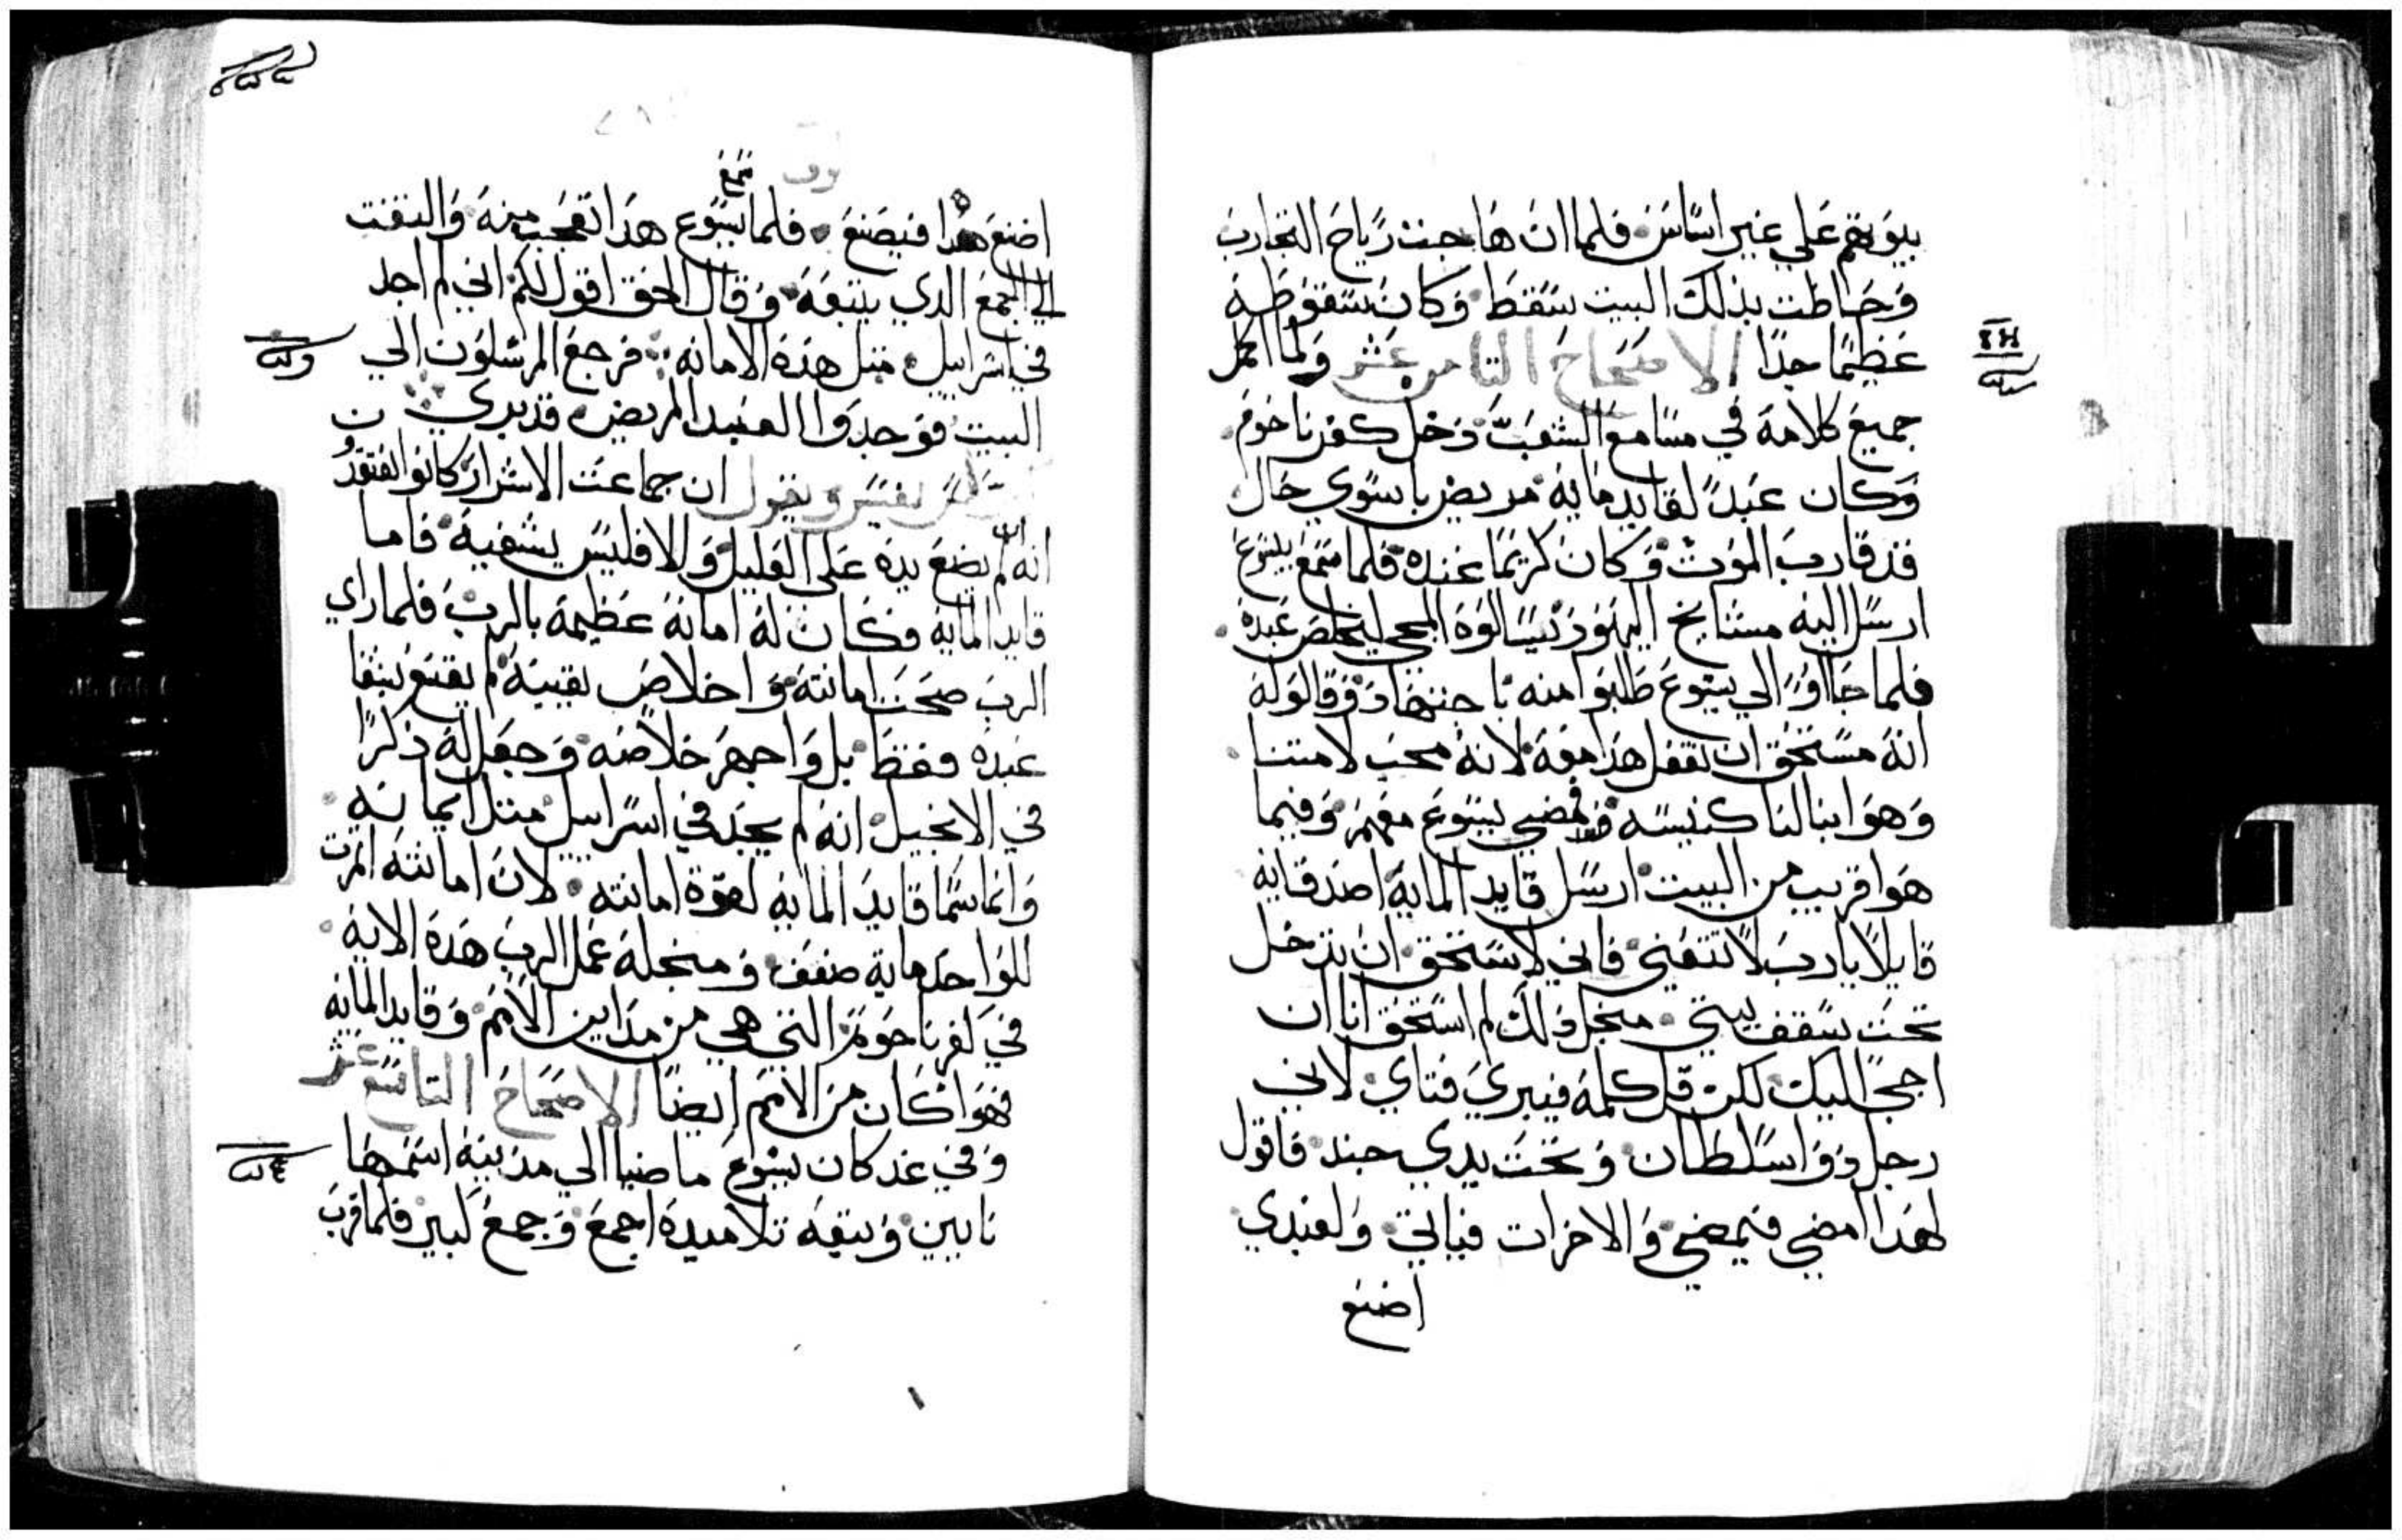 بيوتهم علي غير اساس فلما ان هاجت رياح التجارب
وحاطت بذلك البيت سقط وكان سقوطه
عظيما جدا الاصحاح التامن عشر ولما اكمل
جميع كلامه في مسامع الشعب دخل كفرناحوم
وكان عبدا لقايد مايه مريض باسوي حال
قد قارب الموت وكان كريما عنده فلما سمع بيسوع
ارسل اليه مشايخ اليهود يسالوه المجي ليخلص عبده
فلما جااوا الي يسوع طلبوا منه باجتهاد وقالو له
انه مستحق ان تفعل هذا معه لانه محب لامتنا
وهوا بنا لنا كنيسه فمضي يسوع معهم وفيما
هوا قريب من البيت ارسل قايد المايه اصدقايه
قايلا يارب لا تتعني فاني لا استحق ان تدخل
تحت سقف بيتي منجل دلك لم استحق انا ان
اجي اليك لكن قل كلمه فيبري فتاي لاني
رجل دو اسلطان وتحت يدي جند فاقول
لهذا امضي فيمضي والاخر ات فياتي ولعبدي
اضنع
اضنع هدا فيصنع فلما سمع يسوع هدا تعجب منه والتفت
الي الجمع الدي يتبعه وقال الحق اقول لكم اني لم اجد
في اسراييل متل هده الامانه فرجع المرسلون الي
البيت فوجدوا العبد المريض قد بري
يفسر ويقول ان جماعت الاشرار كانوا
انه لم يضع يده علي العليل والا فليس يشفيه فاما
قايد المايه فكان له امانه عظيمه بالرب فلما راي
الرب صحت امانته واخلاص يقينه لم يقنع بشفا
عبده فقط بل واجهر خلاصه وجعل له ذكرا
في الانجيل انه لم يجد في اسراييل متل ايمانه
وانما سما قايد المايه لقوة امانته لان امانته اتمرت
للواحد مايه ضعف ومنجله عمل الرب هده الايه
في كفرناحوم التي هي من مداين الامم وقايد المايه
فهوا كان من الامم ايضا الاصحاح التاسع عشر
وفي غد كان يسوع ماضيا الي مدينه اسمها
نايين وتبعه تلاميده اجمع وجمع كبير فلما قرب